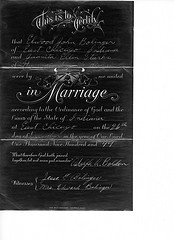 This is to Certify
That Elwood John
of East Chicago Indiana
and Juanita Ellen
were by me united
in Marriage
according to the Ordinance of God and the
Laws of the State of Indiana
at East Chicago on the 28th
day of in the year of Our Lord
One Thousand Nine Hundred and 44
What therefore God hath joined
together let not man put asunder
Witnesses
Mrs. Edward